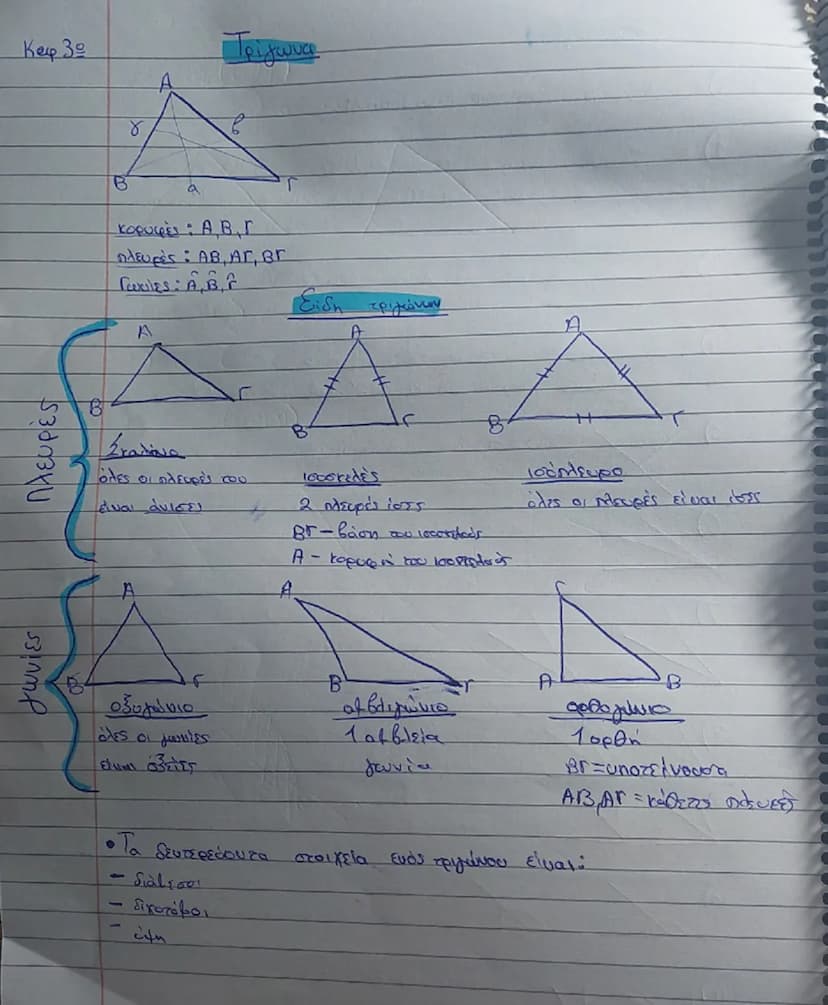 Κεφ 3ο
Τρίγωνα
Α
γ
β
Β
α
Γ
κορυφές : Α, Β, Γ
πλευρές : ΑΒ, ΑΓ, ΒΓ
Γωνίες : Â, Β̂, Γ̂
Είδη τριγώνων
πλευρές
Α
Β
Γ
Α
Β
Γ
Α
Β
Γ
Σκαληνό
όλες οι πλευρές του
είναι άνισες
ισοσκελές
2 πλευρές ίσες
ΒΓ – βάση του ισοσκελούς
Α – κορυφή του ισοσκελούς
ισόπλευρο
όλες οι πλευρές είναι ίσες
γωνίες
Α
Β
Γ
Α
Β
Γ
Γ
Α
Β
οξυγώνιο
όλες οι γωνίες
είναι οξείες
αμβλυγώνιο
1 αμβλεία
γωνία
ορθογώνιο
1 ορθή
ΒΓ = υποτείνουσα
ΑΒ, ΑΓ = κάθετες πλευρές
• Τα δευτερεύοντα στοιχεία ενός τριγώνου είναι:
– διάμεσοι
– διχοτόμοι
– ύψη